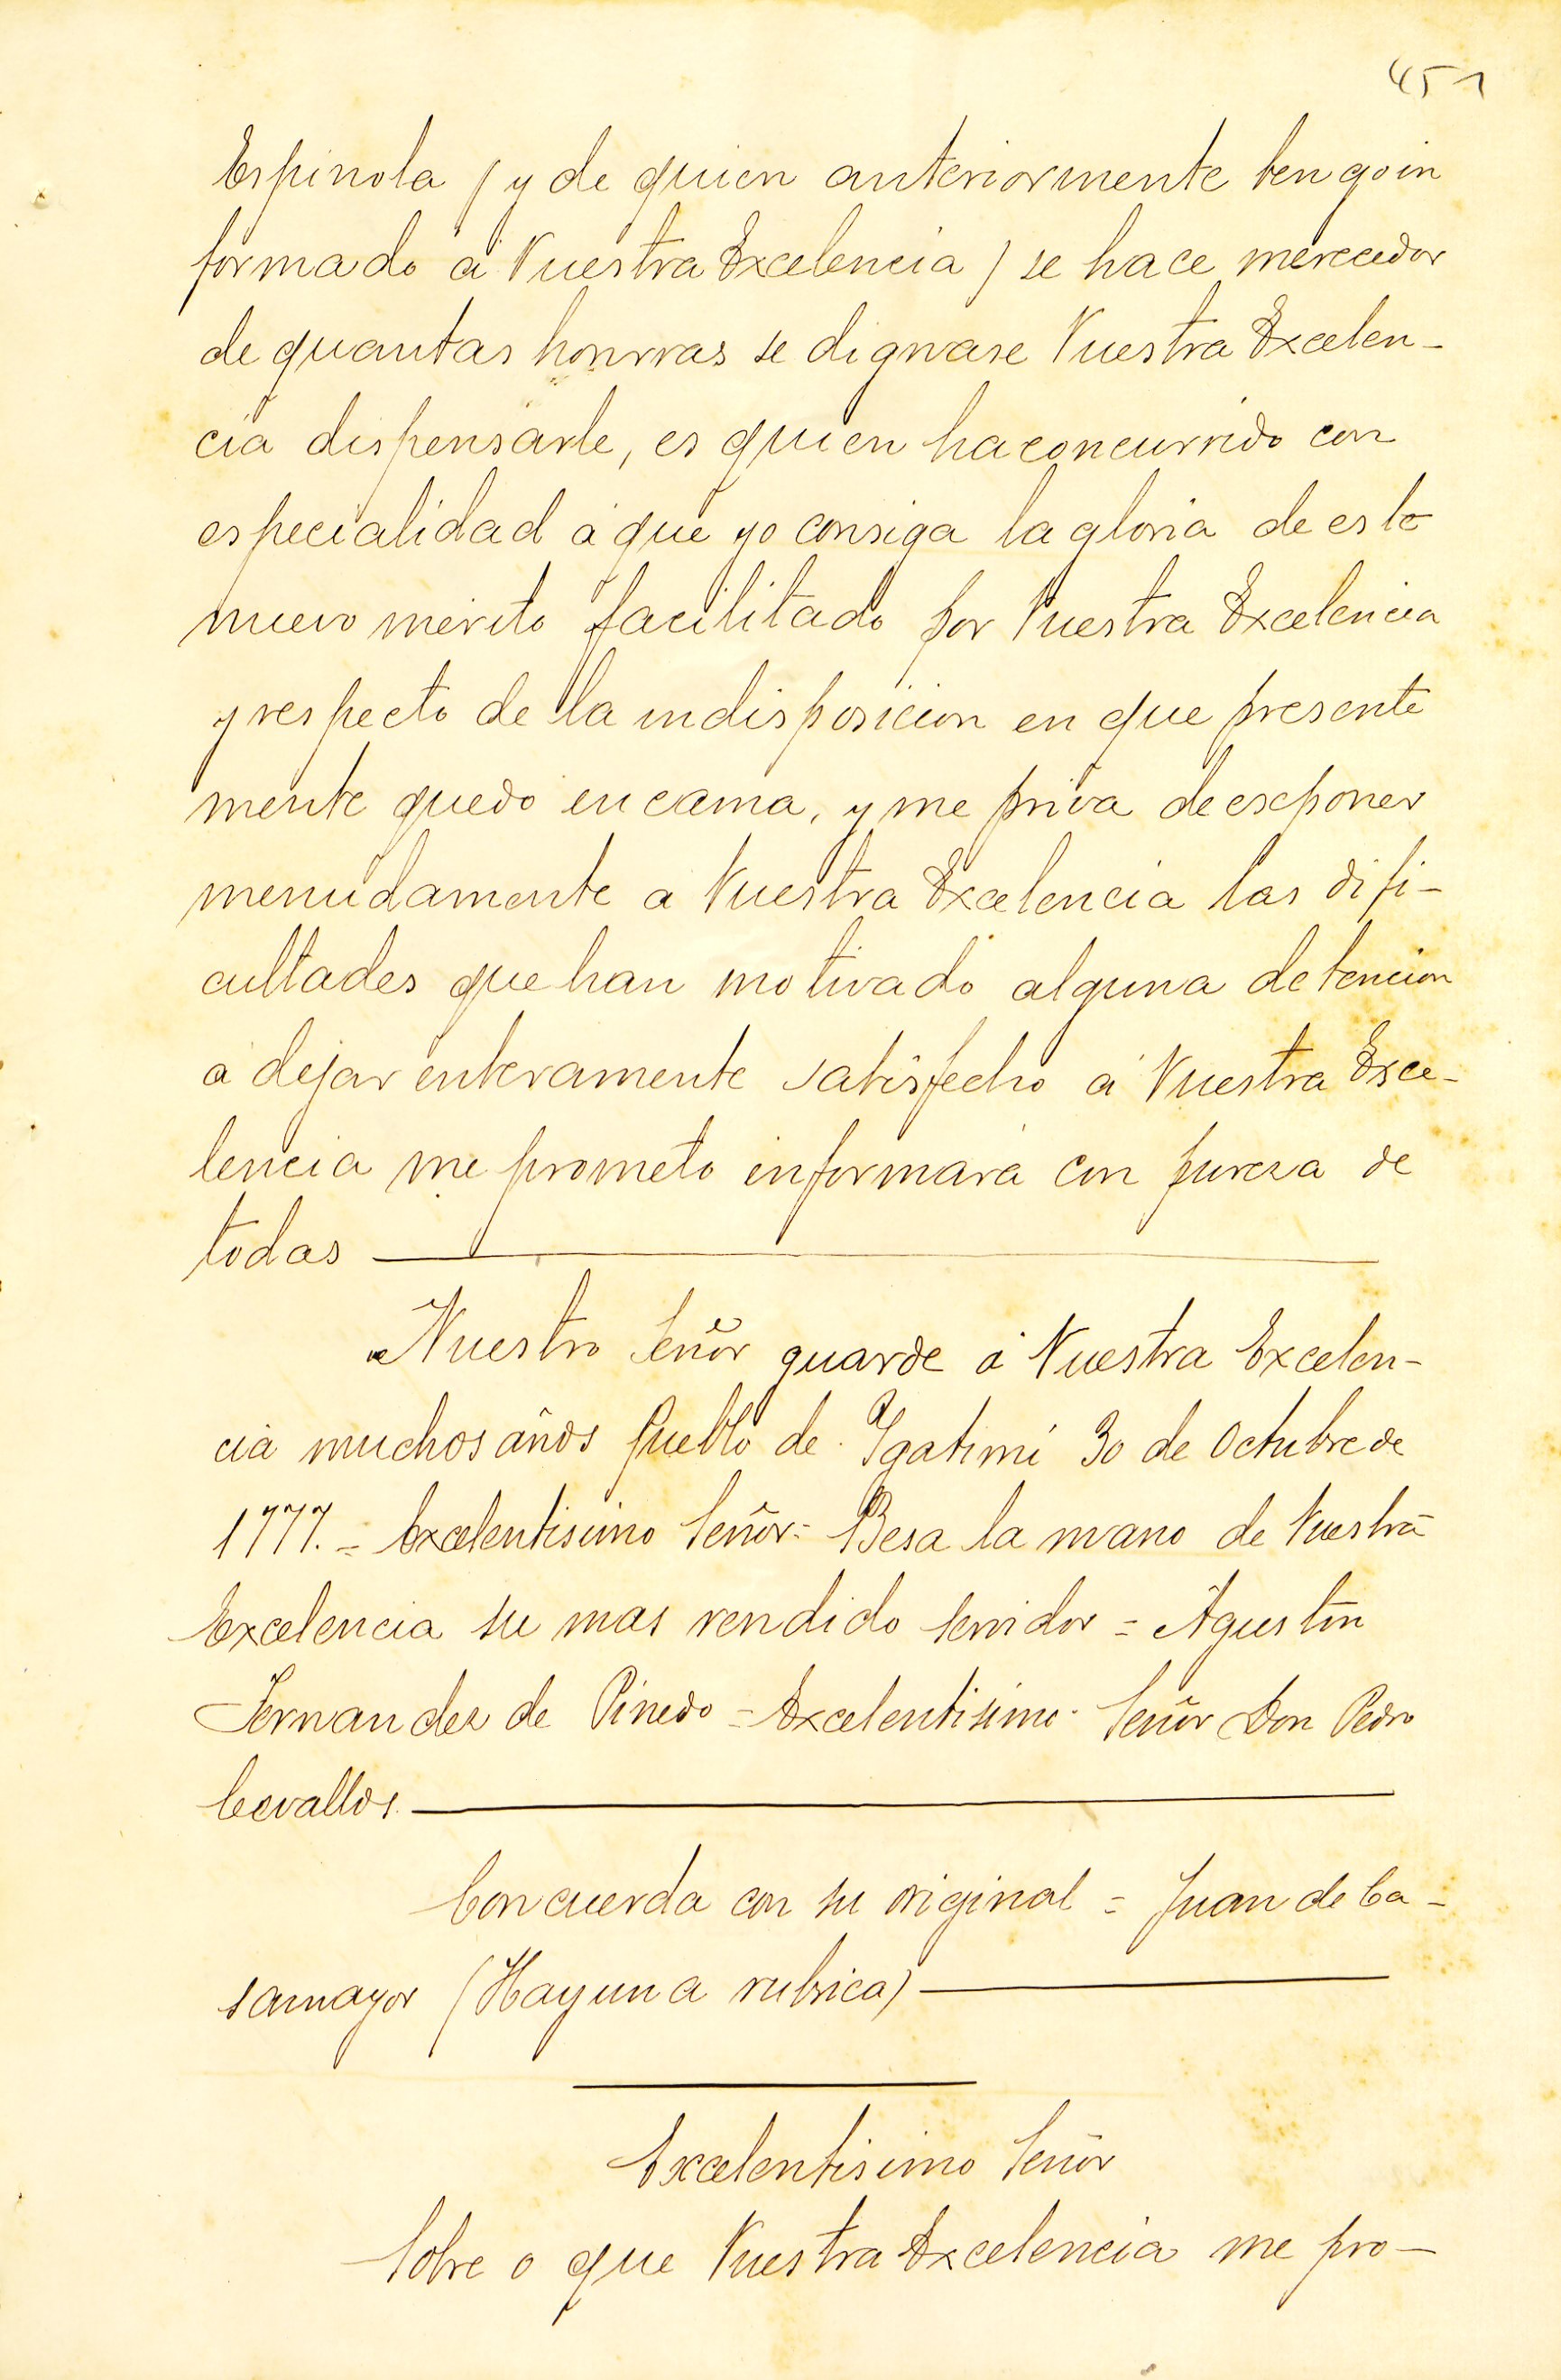 451
Espinola / y de quien anteriormente tengo in
formado á Vuestra Excelencia / se hace merecedor
de quantas honrras se dignase Vuestra Excelen-
cia dispensarle, es quien ha concurrido con
especialidad á que yo consiga la gloria de este
nuevo merito facilitado por Vuestra Excelencia
y respecto de la indisposicion en que presente
mente quedo en cama, y me priva de esponer
menudamente a Vuestra Excelencia las difi-
cultades que han motivado alguna detencion
a dejar enteramente satisfecho á Vuestra Exce-
lencia me prometo informará con pureza de
todas
Nuestro Señor guarde á Vuestra Excelen-
cia muchos años Pueblo de Ygatimi 30 de Octubre de
1777. = Excelentisimo Señor = Besa la mano de Vuestra
Excelencia su mas rendido servidor = Agustin
Fernandez de Pinedo = Excelentisimo Señor Don Pedro
Cevallos.
Concuerda con su original = Juan de Ca-
samayor (Hay una rubrica)
Excelentisimo Señor
Sobre o que Vuestra Excelencia me pro-